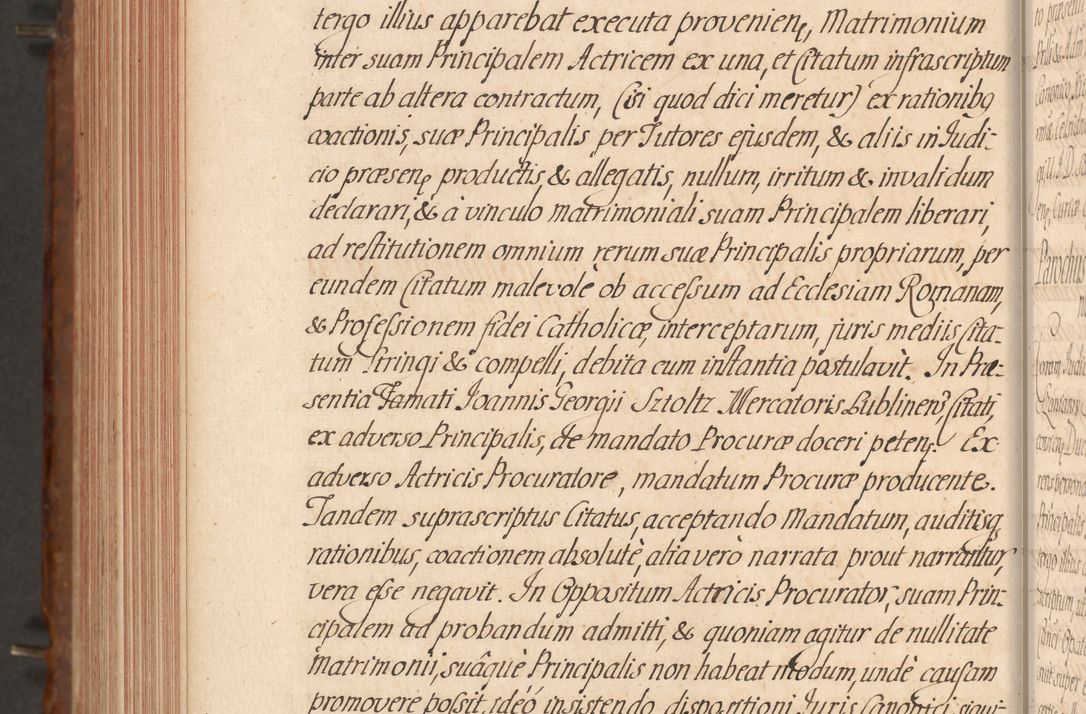 tergo illius apparebat executa provenienę, Matrimonium
inter suam Principalem Actricem ex una, et Citatum infrascriptum
parte ab altera contractum, (si quod dici meretur) ex rationibq
coactionis, suæ Principalis per Tutores ejusdem, & aliis in Judi-
cio præsenę productis, & allegatis, nullum, irritum & invalidum
declarari, & à vinculo matrimoniali suam Principalem liberari,
ad restitutionem omnium rerum suæ Principalis propriarum, per
eundem Citatum malevolè ob accessum ad Ecclesiam Romanam,
& Professionem fidei Catholicæ, interceptarum, juris mediis Cita-
tum stringi & compelli, debita cum instantia postulavit. In Præ-
sentia Famati Joannis Georgii Sztoltz Mercatoris Lublinens, Citati,
ex adverso Principalis, de mandato Procuræ doceri petenę. Ex
adverso Actricis Procuratore, mandatum Procuræ producente.
Tandem suprascriptus Citatus, acceptando Mandatum, auditisq
rationibus, coactionem absolutè, alia verò narrata prout narrantur,
vera esse negavit. In Oppositum Actricis Procurator, suam Prin-
cipalem ad probandum admitti, & quoniam agitur de nullitate
matrimonii, suâquè Principalis non habeat modum, undè causam
promovere possit, ideó insistendo dispositioni Juris Canonici, siqui-